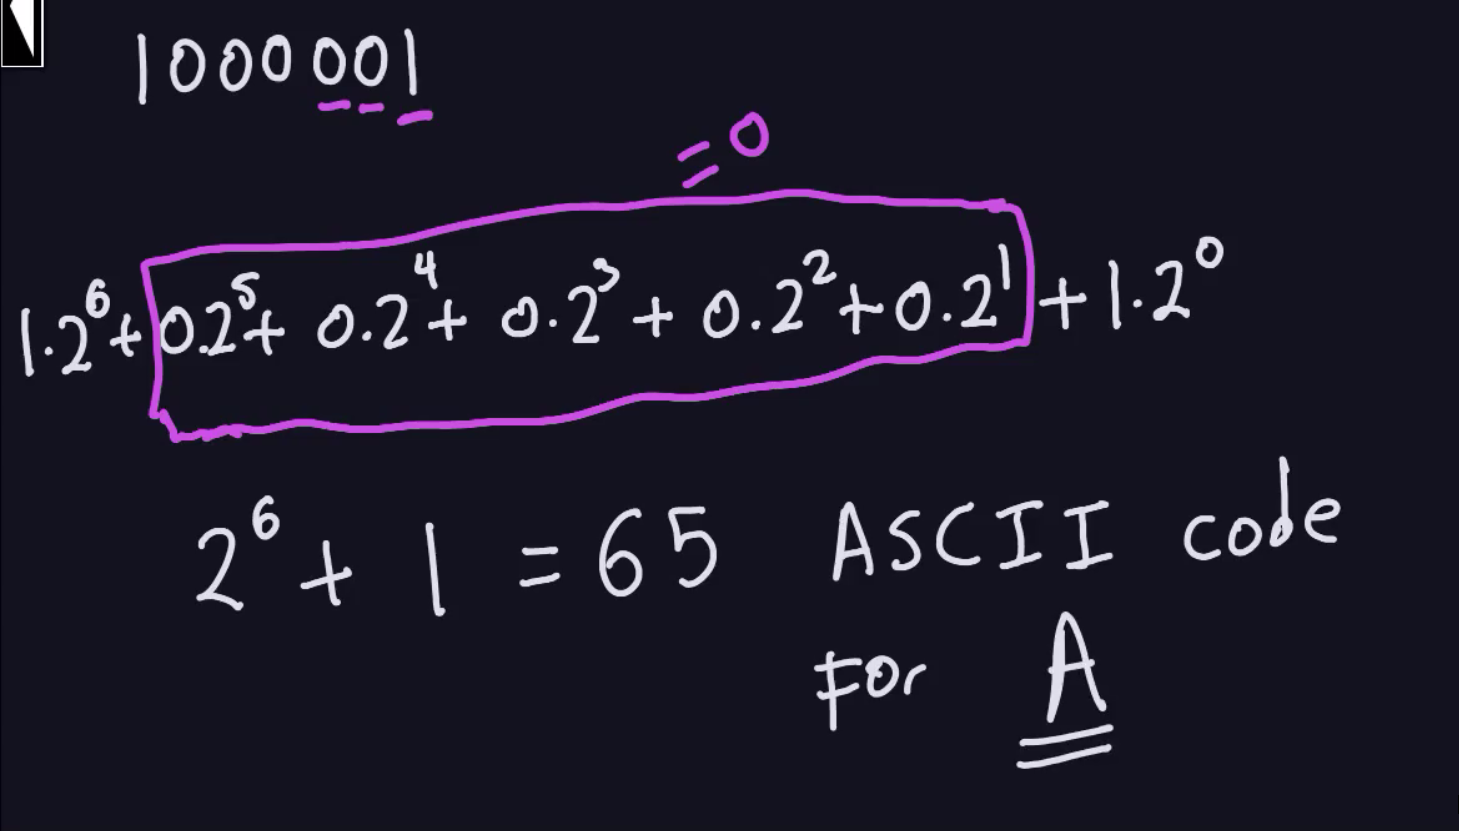 1000001
=0
1.2⁶+0.2⁵+ 0.2⁴+ 0.2³+ 0.2²+0.2¹+1.2⁰
2⁶+1=65 ASCII code
For A